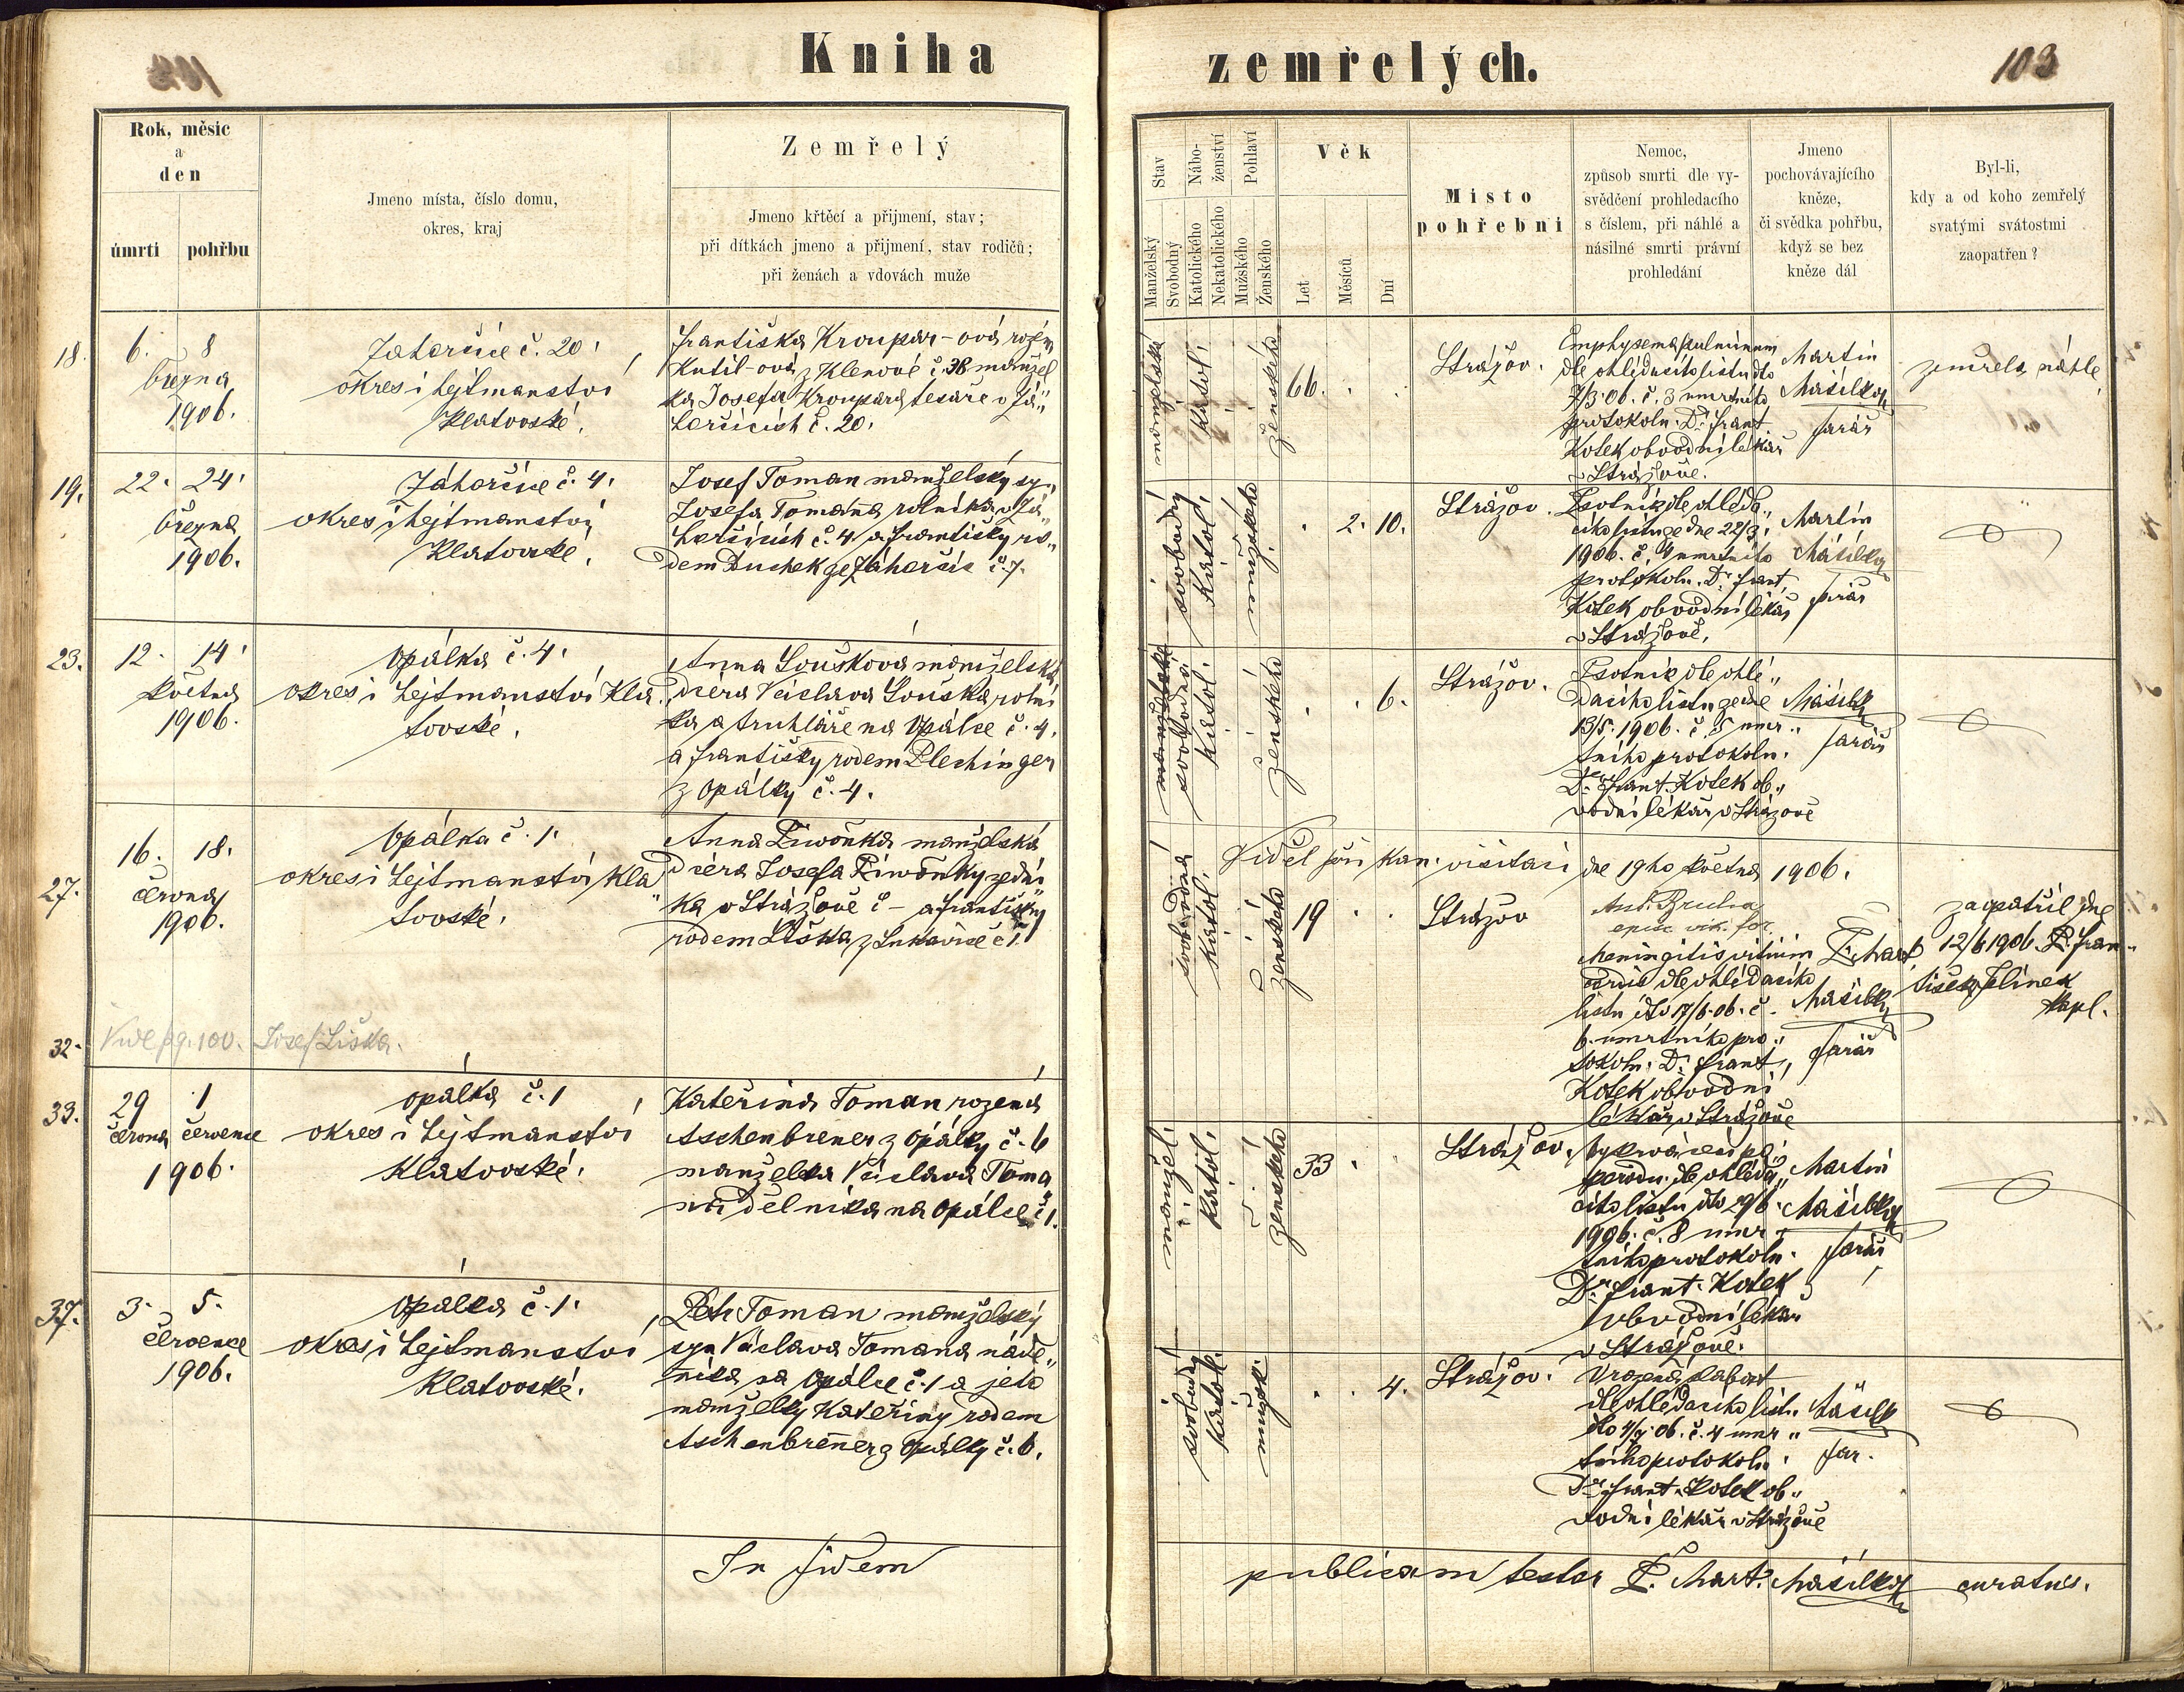 Kniha zemřelých.
103
Rok, měsíc
a
den
úmrtí pohřbu
Jmeno místa, číslo domu,
okres, kraj
Zemřelý
Jmeno křtěcí a přijmení, stav;
při dítkách jmeno a přijmení, stav rodičů;
při ženách a vdovách muže
Stav
Manželský
Svobodný
Nábo-
ženství
Katolického
Nekatolického
Pohlaví
Mužského
Ženského
Věk
Let
Měsíců
Dní
Místo
pohřební
Nemoc,
způsob smrti dle vy-
svědčení prohledacího
s číslem, při náhlé a
násilné smrti právní
prohledání
Jmeno
pochovávajícího
kněze,
či svědka pohřbu,
když se bez
kněze dál
Byl-li,
kdy a od koho zemřelý
svatými svátostmi
zaopatřen?
18. 6. 8
března
1906.
Zahorčice č. 20.
okres i hejtmanství
Klatovské.
Františka Kroupar-ová roz.
Kutil-ová z Klenové č. 38 manžel
ka Josefa Kroupara tesaře v Zá„
horčicích č. 20.
manželská
katol.
ženského
66.
Strážov.
Emphysema pulmonum
dle ohledacího listu dto
7/3 06. č. 3 úmrtního
protokolu. Dr. Frant.
Kotek obvodní lékař
v Strážově.
Martin
Mašilka
farář
zemřela náhle
19. 22. 24.
března
1906.
Záhorčice č. 4.
okres i hejtmanství
Klatovské.
Josef Toman manželský sy„
Josefa Tomana rolníka v Zá„
horčicích č. 4 a Františky ro„
dem Duchek ze Záhorčic č. 7.
svobodný
katol.
mužského
2. 10.
Strážov.
Psotník dle ohleda„
cího listu ze dne 22/3.
1906. č. 4 úmrtního
protokolu. Dr. Frant.
Kotek obvodní lékař
v Strážově.
Martin
Mašilka
farář
23. 12. 14.
května
1906.
Opálka č. 4.
okres i hejtmanství Kla
tovské.
Anna Loušková manželská
dcera Václava Louška rolní
ka a truhláře na Opálce č. 4.
a Františky rodem Plechinger
z Opálky č. 4.
manželská
svobodná
katol.
ženského
6.
Strážov.
Psotník dle ohle„
dacího listu ze dne
13/5. 1906. č. 5 úmr„
tního protokolu.
Dr. Frant. Kotek ob„
vodní lékař v Strážově
Mašilka
farář
Viděl při kan. visitaci dne 19ho května 1906.
27. 16. 18.
června
1906.
Opálka č. 1.
okres i hejtmanství Kla„
tovské.
Anna Piwoňka manželská
dcera Josefa Piwoňky zední
ka v Strážově č – a Františky
rodem Liška z Lukavice č 1.
svobodná
katol.
ženského
19
Strážov
Ant. Bruha
vik. for.
Meningitis vitium
cordis dle ohledacího
listu dto 17/6. 06. č.
6. úmrtního pro„
tokolu. Dr. Frant.
Kotek obvodní
lékař v Strážově
P. Mart.
Mašilka
farář
zaopatřil dne
12/6 1906. P. Fran„
tišek Jelínek
kapl.
32. Vide pg. 100. Josef Liška.
33. 29 1
června července
1906.
Opálka č. 1
okres i hejtmanství
Klatovské.
Kateřina Toman rozená
Aschenbrener z Opálky č. 6
manželka Václava Toma
na dělníka na Opálce č 1.
manžel.
katol.
ženského
33
Strážov.
Vykrvácení při
porodu dle ohleda„
cího listu dto 29/6.
1906. č. 8 úmr„
tního protokolu.
Dr. Frant. Kotek
obvodní lékař
v Strážově.
Martin
Mašilka
farář
37. 3. 5.
července
1906.
Opálka č. 1.
okres i hejtmanství
Klatovské.
Petr Toman manželský
syn Václava Tomana náde„
níka na Opálce č. 1 a jeho
manželky Kateřiny rodem
Aschenbrener z Opálky č. 6.
svobodný
katol.
mužsk.
4.
Strážov.
Vrozená slabost
dle ohledacího list.
dto 4/7. 06. č. 4 úmr„
tního protokolu.
Dr. Frant. Kotek ob„
vodní lékař v Strážově
Mašilk
far.
In fidem publicam testor P. Mart. Mašilka curatus.